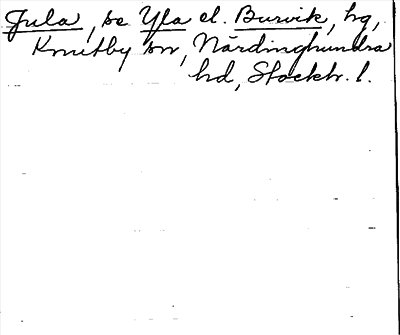 Jula, se Yla el. Burvik, hg,
Knutby sn, Närdinghundra
hd, Stockh. l.